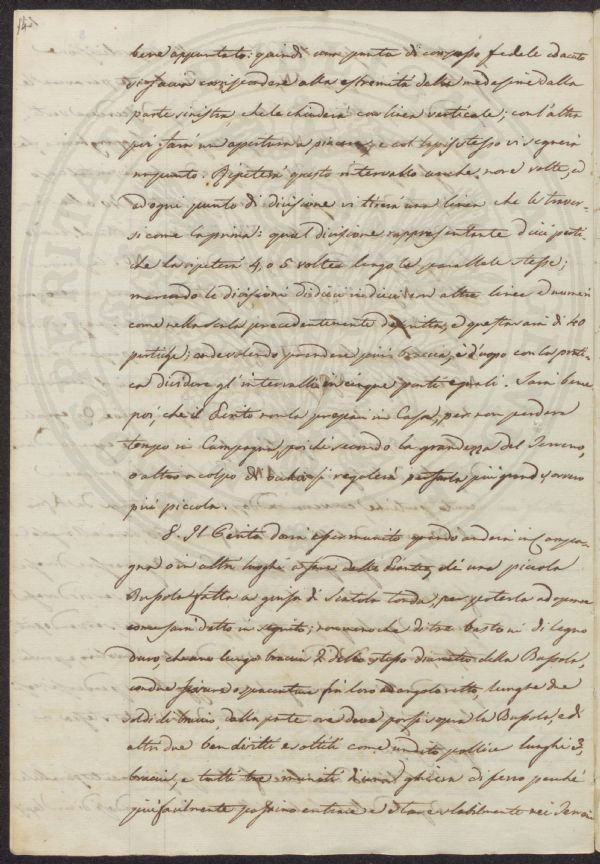 bene appuntato: quindi una punta di compasso fedele ed acuto
si faccia corrispondere alla estremità delle medesime dalla
parte sinistra che la chiuderà con linea verticale; con l'altra
poi farà un'apertura a piacere, e col lapis stesso vi segnerà
un punto. Ripeterà questo intervallo anche nove volte, e
ad ogni punto di divisione vi tirerà una linea che le traver-
si come la prima: qual divisione rappresentante dieci perti-
che la ripeterà 4, o 5 volte a lungo le parallele stesse;
marcando le divisioni di dieci in dieci con altre linee e numeri
come nella scala precedentemente descritta, e questa sarà di 40
pertiche; onde volendo prendere più braccia, è d'uopo con la prati-
ca dividere gl'intervalli in cinque parti eguali. Sarà bene
poi, che il Perito non la prepari in Casa, per non perdere
tempo in Campagna, poichè secondo la grandezza del Terreno,
o altro a colpo d'occhio si regolerà per farla più grande, ovvero
più piccola.
8. Il Perito dovrà esser munito quando anderà in Campa-
gna o in altri luoghi a fare delle Piante, di una piccola
Bussola fatta a guisa di Scatola tonda, per poterla adoperare
come sarà detto in seguito; non meno che di tre bastoni di legno
duro, che uno lungo braccia 2 dello stesso diametro della Bussola,
con due
fra loro ad angolo retto, lunghe due
soldi di braccio dalla parte ove deve porsi sopra la Bussola, e di
altri due ben diritti e sottili come un dito pollice lunghi 3
braccia, e tutti tre muniti di una ghiera di ferro perchè
più facilmente possino entrare e stare stabilmente nei Terreni